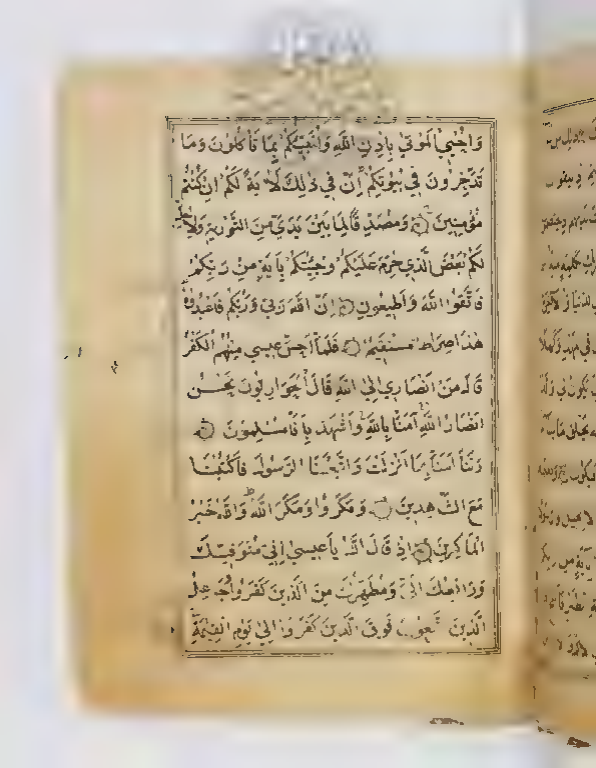 وَاُحْيِي الْمَوْتَىٰ بِاِذْنِ اللّٰهِ وَاُنَبِّئُكُمْ بِمَا تَأْكُلُونَ وَمَا
تَدَّخِرُونَ فِي بُيُوتِكُمْ اِنَّ فِي ذٰلِكَ لَاٰيَةً لَكُمْ اِنْ كُنْتُمْ
مُؤْمِنِينَ وَمُصَدِّقًا لِمَا بَيْنَ يَدَيَّ مِنَ التَّوْرٰيةِ وَلِاُحِلَّ
لَكُمْ بَعْضَ الَّذِي حُرِّمَ عَلَيْكُمْ وَجِئْتُكُمْ بِاٰيَةٍ مِنْ رَبِّكُمْ
فَاتَّقُوا اللّٰهَ وَاَطِيعُونِ اِنَّ اللّٰهَ رَبِّي وَرَبُّكُمْ فَاعْبُدُوهُ
هٰذَا صِرَاطٌ مُسْتَقِيمٌ فَلَمَّا اَحَسَّ عِيسٰي مِنْهُمُ الْكُفْرَ
قَالَ مَنْ اَنْصَارِي اِلَي اللّٰهِ قَالَ الْحَوَارِيُّونَ نَحْنُ
اَنْصَارُ اللّٰهِ اٰمَنَّا بِاللّٰهِ وَاشْهَدْ بِاَنَّا مُسْلِمُونَ
رَبَّنَا اٰمَنَّا بِمَا اَنْزَلْتَ وَاتَّبَعْنَا الرَّسُولَ فَاكْتُبْنَا
مَعَ الشَّاهِدِينَ وَمَكَرُوا وَمَكَرَ اللّٰهُ وَاللّٰهُ خَيْرُ
الْمَاكِرِينَ اِذْ قَالَ اللّٰهُ يَاعِيسٰي اِنِّي مُتَوَفِّيكَ
وَرَافِعُكَ اِلَيَّ وَمُطَهِّرُكَ مِنَ الَّذِينَ كَفَرُوا وَجَاعِلُ
الَّذِينَ اتَّبَعُوكَ فَوْقَ الَّذِينَ كَفَرُوا اِلٰي يَوْمِ الْقِيٰمَةِ